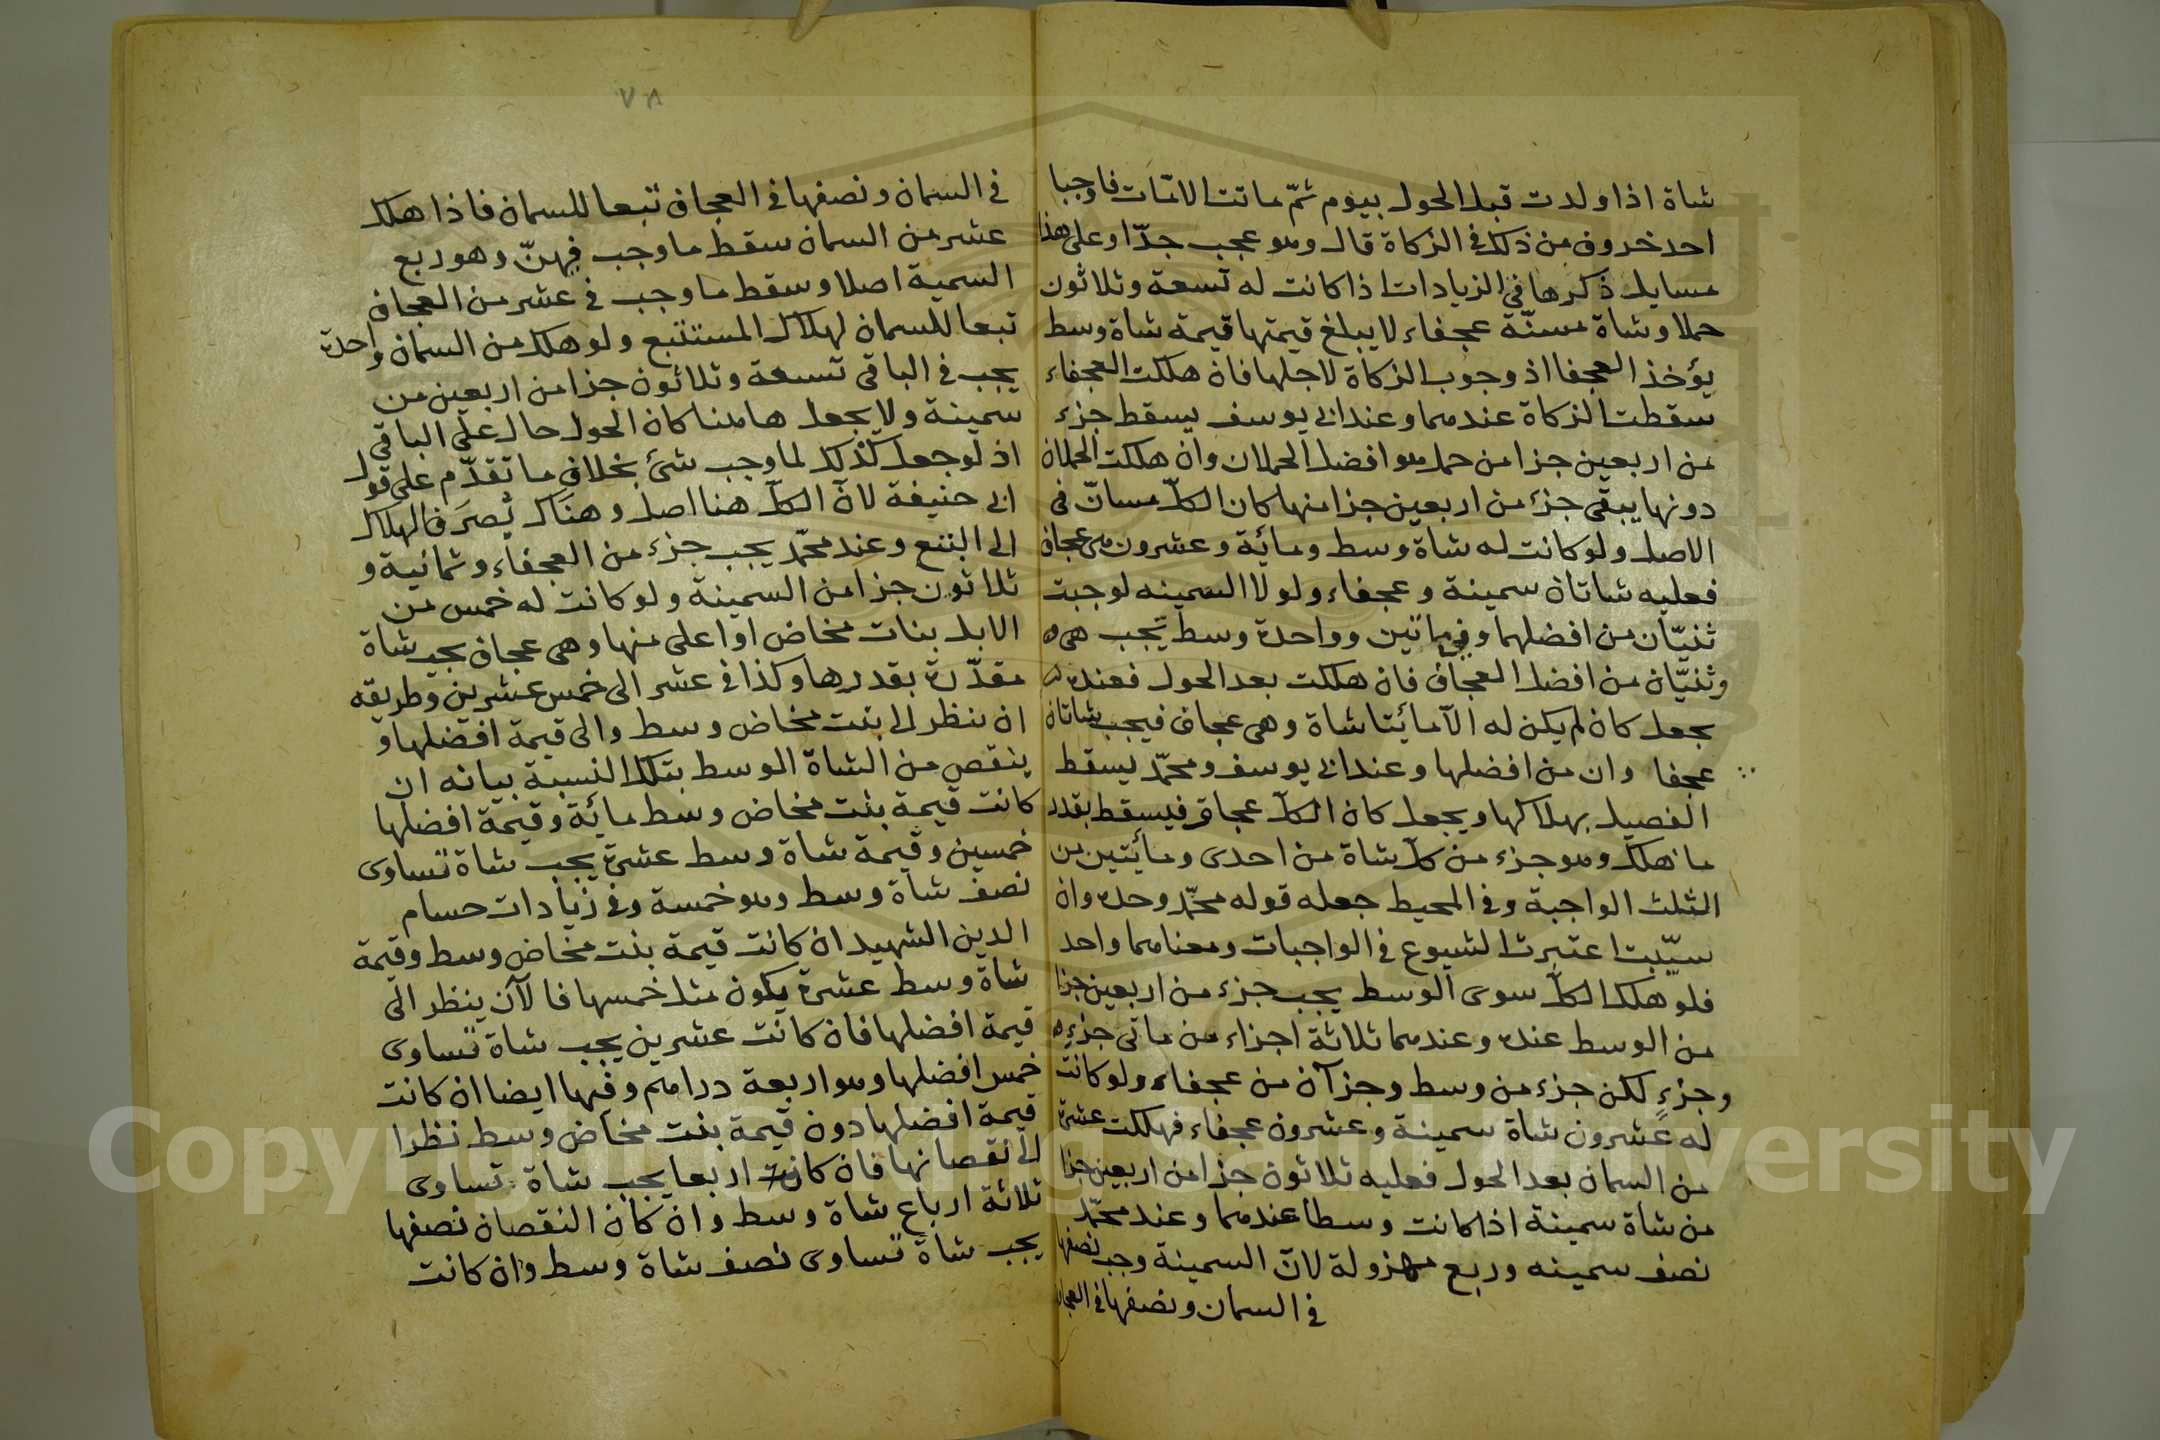 شاة اذا ولدت قبل الحول بيوم ثمّ ماتت الامّات فاوجبا
احد خدون من ذلك في الزكاة قال وهو عجب جدّا وعلى هذا
مسايل ذكرها في الزيادات اذا كانت له تسعة وثلاثون
حملا وشاة مسنّة عجفاء لا يبلغ قيمتها قيمة شاة وسط
يؤخذ العجفا اذ وجوب الزكاة لاجلها فان هلكت العجفاء
سقطت الزكاة عندهما وعند ابي يوسف يسقط جزء
من اربعين جزا من حمل هو افضل الحملان وان هلكت الحملان
دونها يبقى جزء من اربعين جزا منها كان الكلّ مسانّ في
الاصل ولو كانت له شاة وسط ومائة وعشرون هى عجاف
فعليه شاتان سمينة وعجفاء ولولا السمينه لوجبت
ثنيّان من افضلهما وفي مائتين وواحدة وسط تجب هى
وثنيّان من افضل العجاف فان هلكت بعد الحول فعنده
يجعل كان لم يكن له الا مائيتا شاة وهى عجاف فيجب شاتان
عجفا وان من افضلها وعند ابي يوسف ومحمّد يسقط
الفصيل بهلاكها ويجعل كان الكلّ عجاف فيسقط بقدر
ما هلك وهو جزء من كلّ شاة من احدى ومائتين من
الثلث الواجبة وفي المحيط جعله قوله محمّد وحده وان
سيّبت اعتبرت الشيوع في الواجبات ومعناهما واحد
فلو هلك الكلّ سوى الوسط يجب جزء من اربعين جزا
من الوسط عنده وعندهما ثلاثة اجزاء من ماتى جزء
وجزءٍ لكن جزء من وسط وجزآن من عجفاء ولو كانت
له عشرون شاة سمينة وعشرون عجفاء فهلكت عشرة
من السمان بعد الحول فعليه ثلاثون جزا من اربعين جزا
من شاة سمينة اذا كانت وسطا عندهما وعند محمّد
نصف سمينه وربع مهزولة لانّ السمينة وجب نصفها
في السمان ونصفها في العجاف
٧٨
في السمان ونصفها في العجاف تبعا للسمان فاذا هلك
عشر من السمان سقط ما وجب فيهنّ وهو ربع
السمية اصلا وسقط ما وجب في عشر من العجاف
تبعا للسمان لهلاك المستتبع ولو هلك من السمان واحدة
يجب في الباقى تسعة وثلاثون جزا من اربعين من
سمينة ولا يجعل هاهنا كان الحول حال على الباقى
اذ لو جعل كذلك لما وجب شئ بخلاف ما تقدّم على قول
ابي حنيفة لانّ الكلّ هنا اصل وهناك يُصرَف الهلاك
الى التبع وعند محمّد يجب جزء من العجفاء وثمانية و
ثلاثون جزا من السمينة ولو كانت له خمس من
الابل بنات مخاض او اعلى منها وهى عجاف يجب شاة
مقدّرة بقدرها وكذا في عشر الى خمس عشرين وطريقه
ان ينظر الى بنت مخاض وسط والى قيمة افضلها و
ينقص من الشاة الوسط بتلك النسبة بيانه ان
كانت قيمة بنت مخاض وسط مائة وقيمة افضلها
خمسين وقيمة شاة وسط عشرة يجب شاة تساوى
نصف شاة وسط وهو خمسة وفي زيادات حسام
الدين الشهيد ان كانت قيمة بنت مخاض وسط وقيمة
شاة وسط عشرة يكون مثل خمسها فا لآن ينظر الى
قيمة افضلها فان كانت عشرين يجب شاة تساوى
خمس افضلها وهو اربعة دراهم وفيها ايضا ان كانت
قيمة افضلها دون قيمة بنت مخاض وسط نظرا
الى نقصانها فان كانت اربعا يجب شاة تساوى
ثلاثة ارباع شاة وسط وان كان النقصان نصفها
يجب شاة تساوى نصف شاة وسط وان كانت